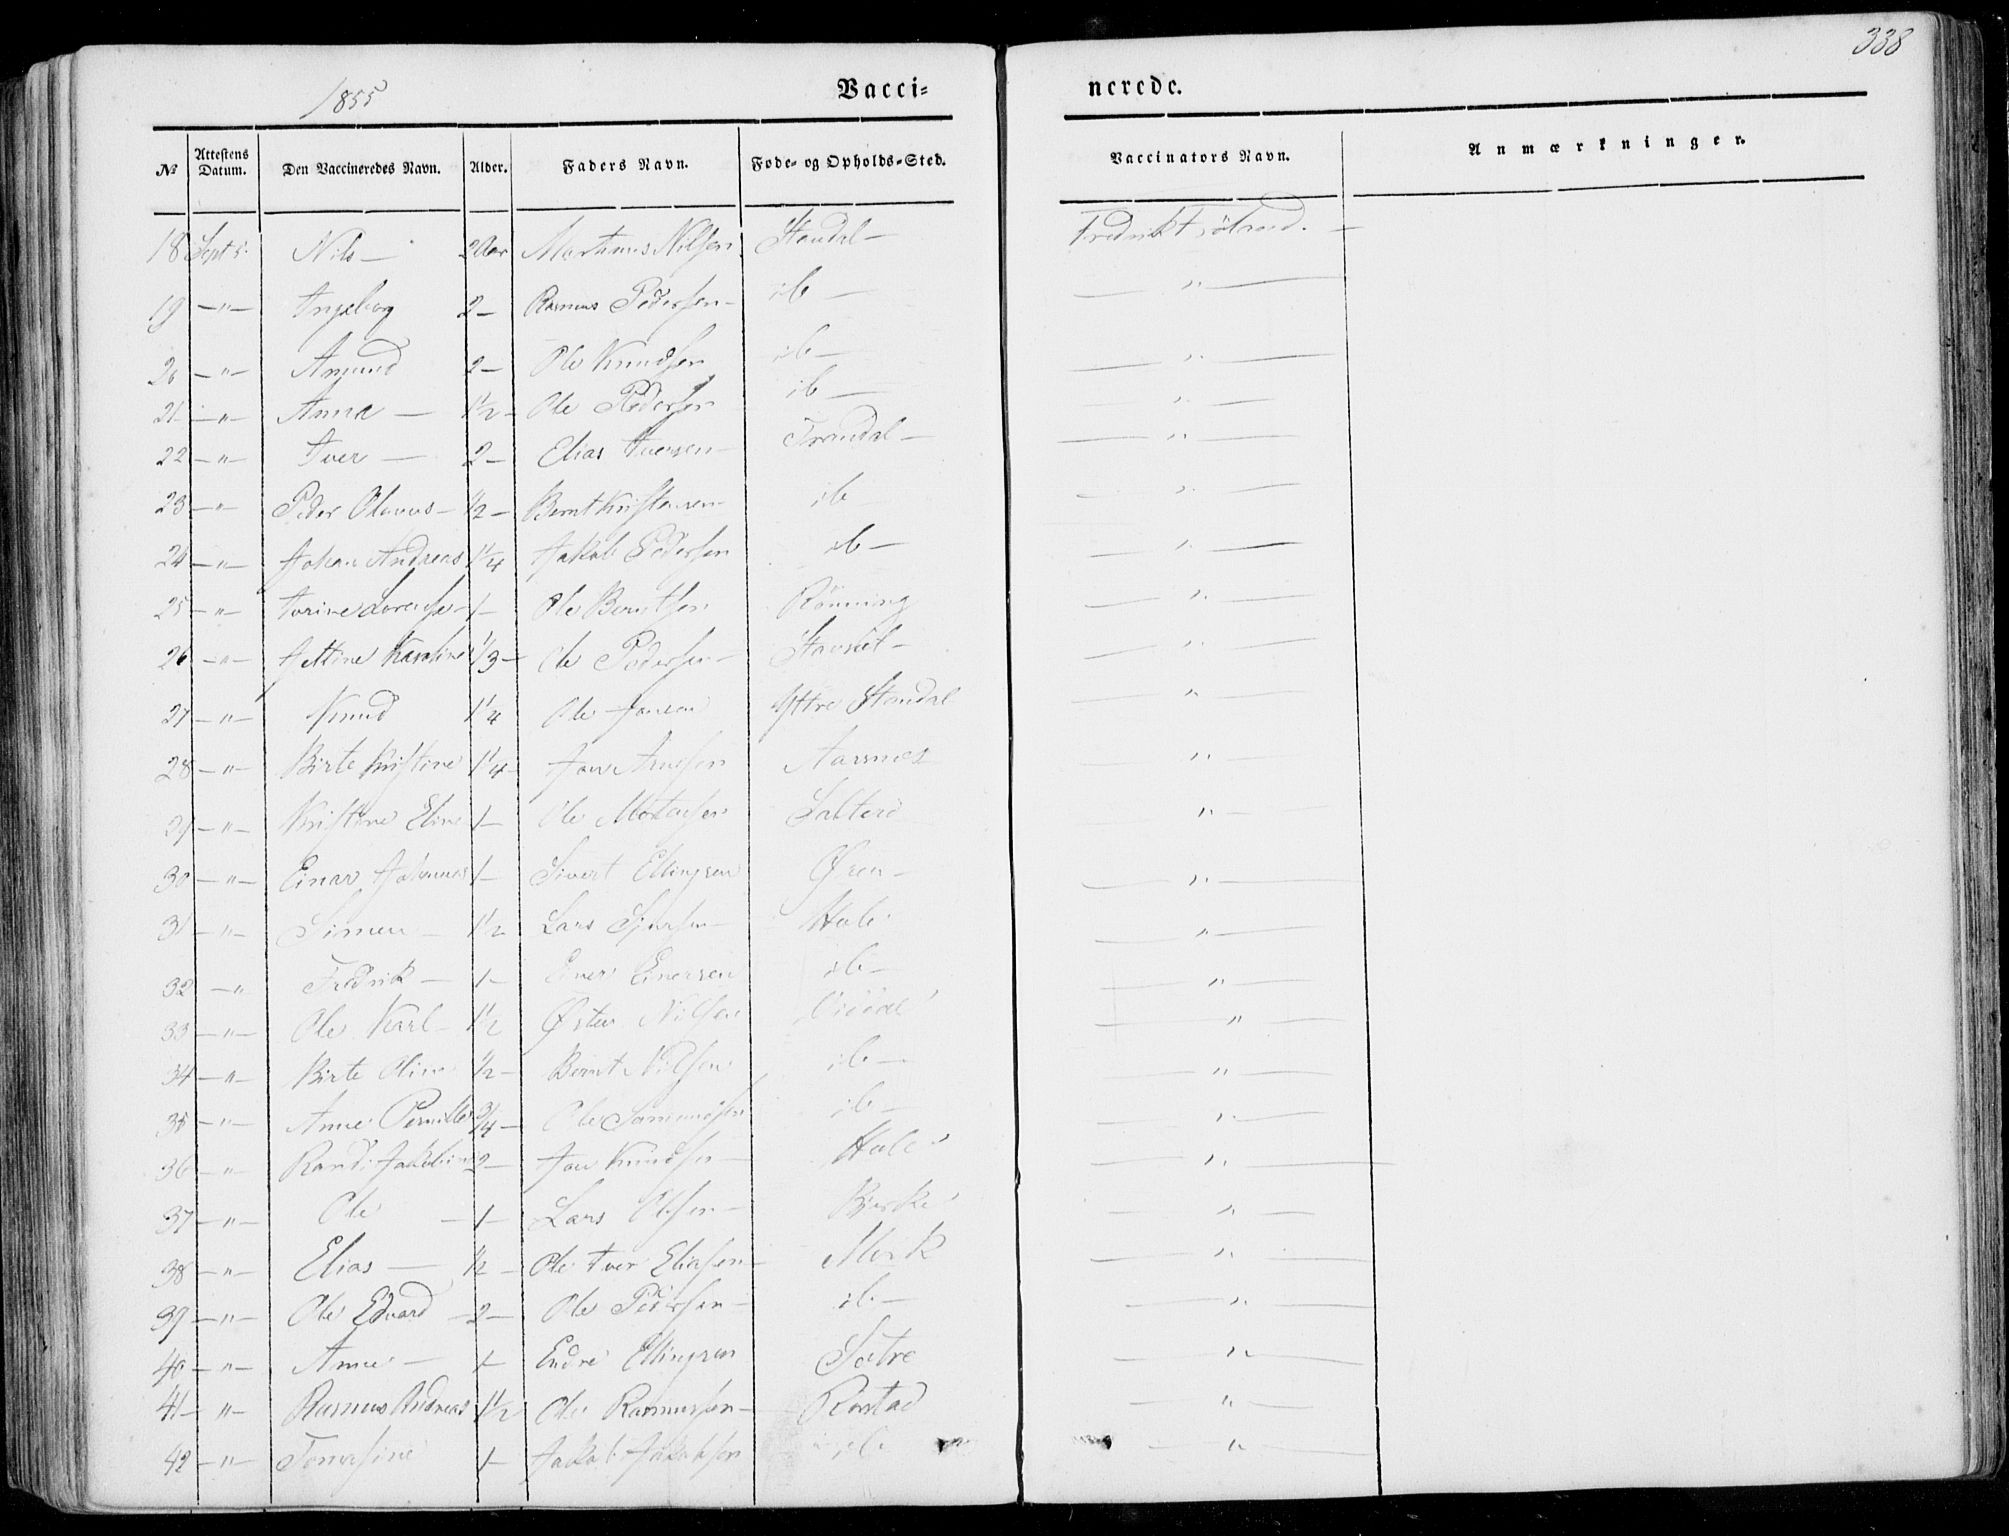 338
1855
Vacci- nerede.
No Attestens Datum. Den Vaccineredes Navn. Alder. Faders Navn. Føde- og Opholds-Sted. Vaccinators Navn. Anmærkninger.
18 Sept 5. Nils — 2 Aar Martinus Nilsen Standal — Fredrik —
19 — " — Ingeborg 2 — Rasmus Pedersen — ib — — " —
20 — " — Amund 2 — Ole Knudsen ib — — " —
21 — " — Anne — 1½ — Ole Pedersen ib — — " —
22 — " — Iver — 2 — Elias Iversen — Trandal — — " —
23 — " — Peder Olavus — ½ — Bernt Kristensen — ib — " —
24 — " — Johan Andreas 1¼ Jakob Pedersen ib — — " —
25 — " — Karine 1 — Ole Berntsen Rönning — " —
26 — " — Jettine Karoline ⅓ — Ole Pedersen — Stavset — — " —
27 — " — Knud 1¼ Ole Jonsen Yttre Standal — " —
28 — " — Birte Kristine 1¼ — Jon Arnesen Aarsnes — " —
29 — " — Kristine Eline 1 — Ole Mortensen — " —
30 — " — Einar Johannes 1 — Sivert Ellingsen Øren — — " —
31 — " — Simen — 1½ Lars — Hole — " —
32 — " Fredrik — 1 — Einer Einersen ib — — " —
33 — " — Ole Karl — 1½ Østen Nilsen — " —
34 — " — Birte Oline ½ — Bernt Nilsen ib — — " —
35 — " — Anne Pernille ¾ — Ole ib — — " —
36 — " Randi Jakobine 2 — Jon Knudsen — Hole — " —
37 — " — Ole — 1 — Lars Olsen — Bjerke — " —
38 — " — Elias — ½ — Ole Iver Eliasen — Molvik — " —
39 — " — Ole Edvard — 2 — Ole Pedersen — ib — — " —
40 — " — Anne — 1 — Endre Ellingsen Sætre — " —
41 — " — Rasmus Andreas 1½ Ole Rasmussen — Rørstad — " —
42 — " — Tomasine 1 — Jakob Jakobsen ib — " —